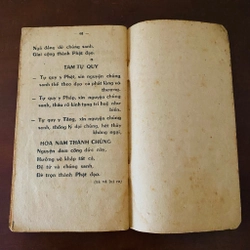 Ngõ đặng độ chúng sanh,
Giai cộng thành Phật đạo.
TAM TỰ QUY
— Tự quy y Phật, xin nguyện chúng
sanh, thể theo đạo cả phát lòng vô
thượng.
— Tự quy y Pháp, xin nguyện chúng
sanh, thấu rõ kinh tạng trí huệ như
biển.
— Tự quy y Tăng, xin nguyện chúng
sanh, thống lý đại chúng, hết thảy
không ngại.
HÒA NAM THÁNH CHÚNG
Nguyện đem công đức này,
Hướng về khắp tất cả,
Đệ tử và chúng sanh,
Đều trọn thành Phật đạo.